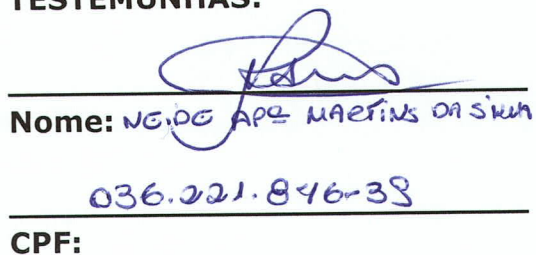 TESTEMUNHAS:
Nome: NEIDE APª MARTINS DA SILVA
036.221.846-39
CPF: